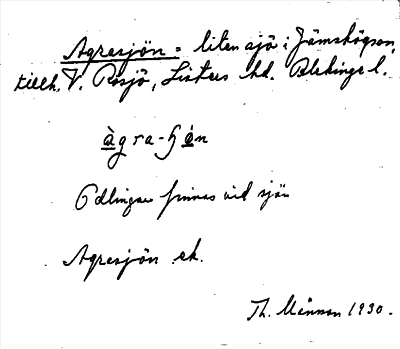 Agresjön = liten sjö i Jämshögssn,
tillh. V. Rösjö, Listers hd. Blekinge l.
àgra-ɧǿn
Odlingar finnas vid sjön
Agresjön ek.
Th. Månsson 1930.